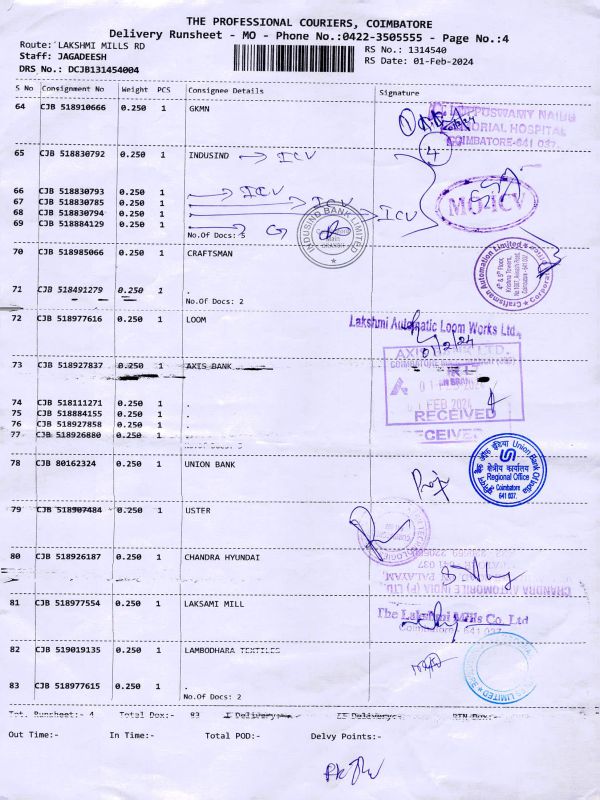 THE PROFESSIONAL COURIERS, COIMBATORE
Delivery Runsheet - MO - Phone No.:0422-3505555 - Page No.:4
Route: LAKSHMI MILLS RD
RS No.: 1314540
Staff: JAGADEESH
RS Date: 01-Feb-2024
DRS No.: DCJB131454004
S No Consignment No Weight PCS Consignee Details Signature
64 CJB 518910666 0.250 1 GKMN
MORIAL HOSPITAL
COIMBATORE-641 037.
4
65 CJB 518830792 0.250 1 INDUSIND ICV
66 CJB 518830793 0.250 1 ICV
67 CJB 518830785 0.250 1 ICV
68 CJB 518830794 0.250 1 ICV
69 CJB 518884129 0.250 1
No.Of Docs: 5
INDUSIND BANK LIMITED
MO-ICV
70 CJB 518985066 0.250 1 CRAFTSMAN
Craftsman Automation Limited
71 CJB 518491279 0.250 1 .
No.Of Docs: 2
72 CJB 518977616 0.250 1 LOOM
Lakshmi Automatic Loom Works Ltd.,
73 CJB 518927837 0.250 1 AXIS BANK
AXIS BANK LTD.
74 CJB 518111271 0.250 1 .
75 CJB 518884155 0.250 1 .
76 CJB 518927858 0.250 1 .
77 CJB 518926880 0.250 1 .
FEB 2024
RECEIVED
78 CJB 80162324 0.250 1 UNION BANK
यूनियन बैंक ऑफ इंडिया Union Bank Of India
क्षेत्रीय कार्यालय
Regional Office
Coimbatore
641 037.
79 CJB 518907484 0.250 1 USTER
80 CJB 518926187 0.250 1 CHANDRA HYUNDAI
CHANDRA AUTOMOBILE INDIA (P) LTD
81 CJB 518977554 0.250 1 LAKSAMI MILL
The Lakshmi Mills Co. Ltd
Coimbatore - 641 037
82 CJB 519019135 0.250 1 LAMBODHARA TEXTILES
83 CJB 518977615 0.250 1 .
No.Of Docs: 2
Tot. Runsheet:- 4 Total Dox:- 83
Out Time:- In Time:- Total POD:- Delvy Points:-